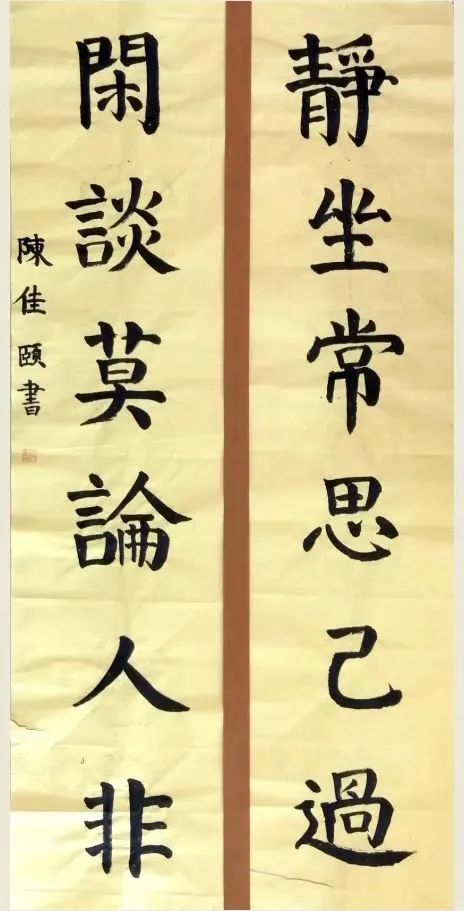 靜坐常思己過
閑談莫論人非
陳佳頤書